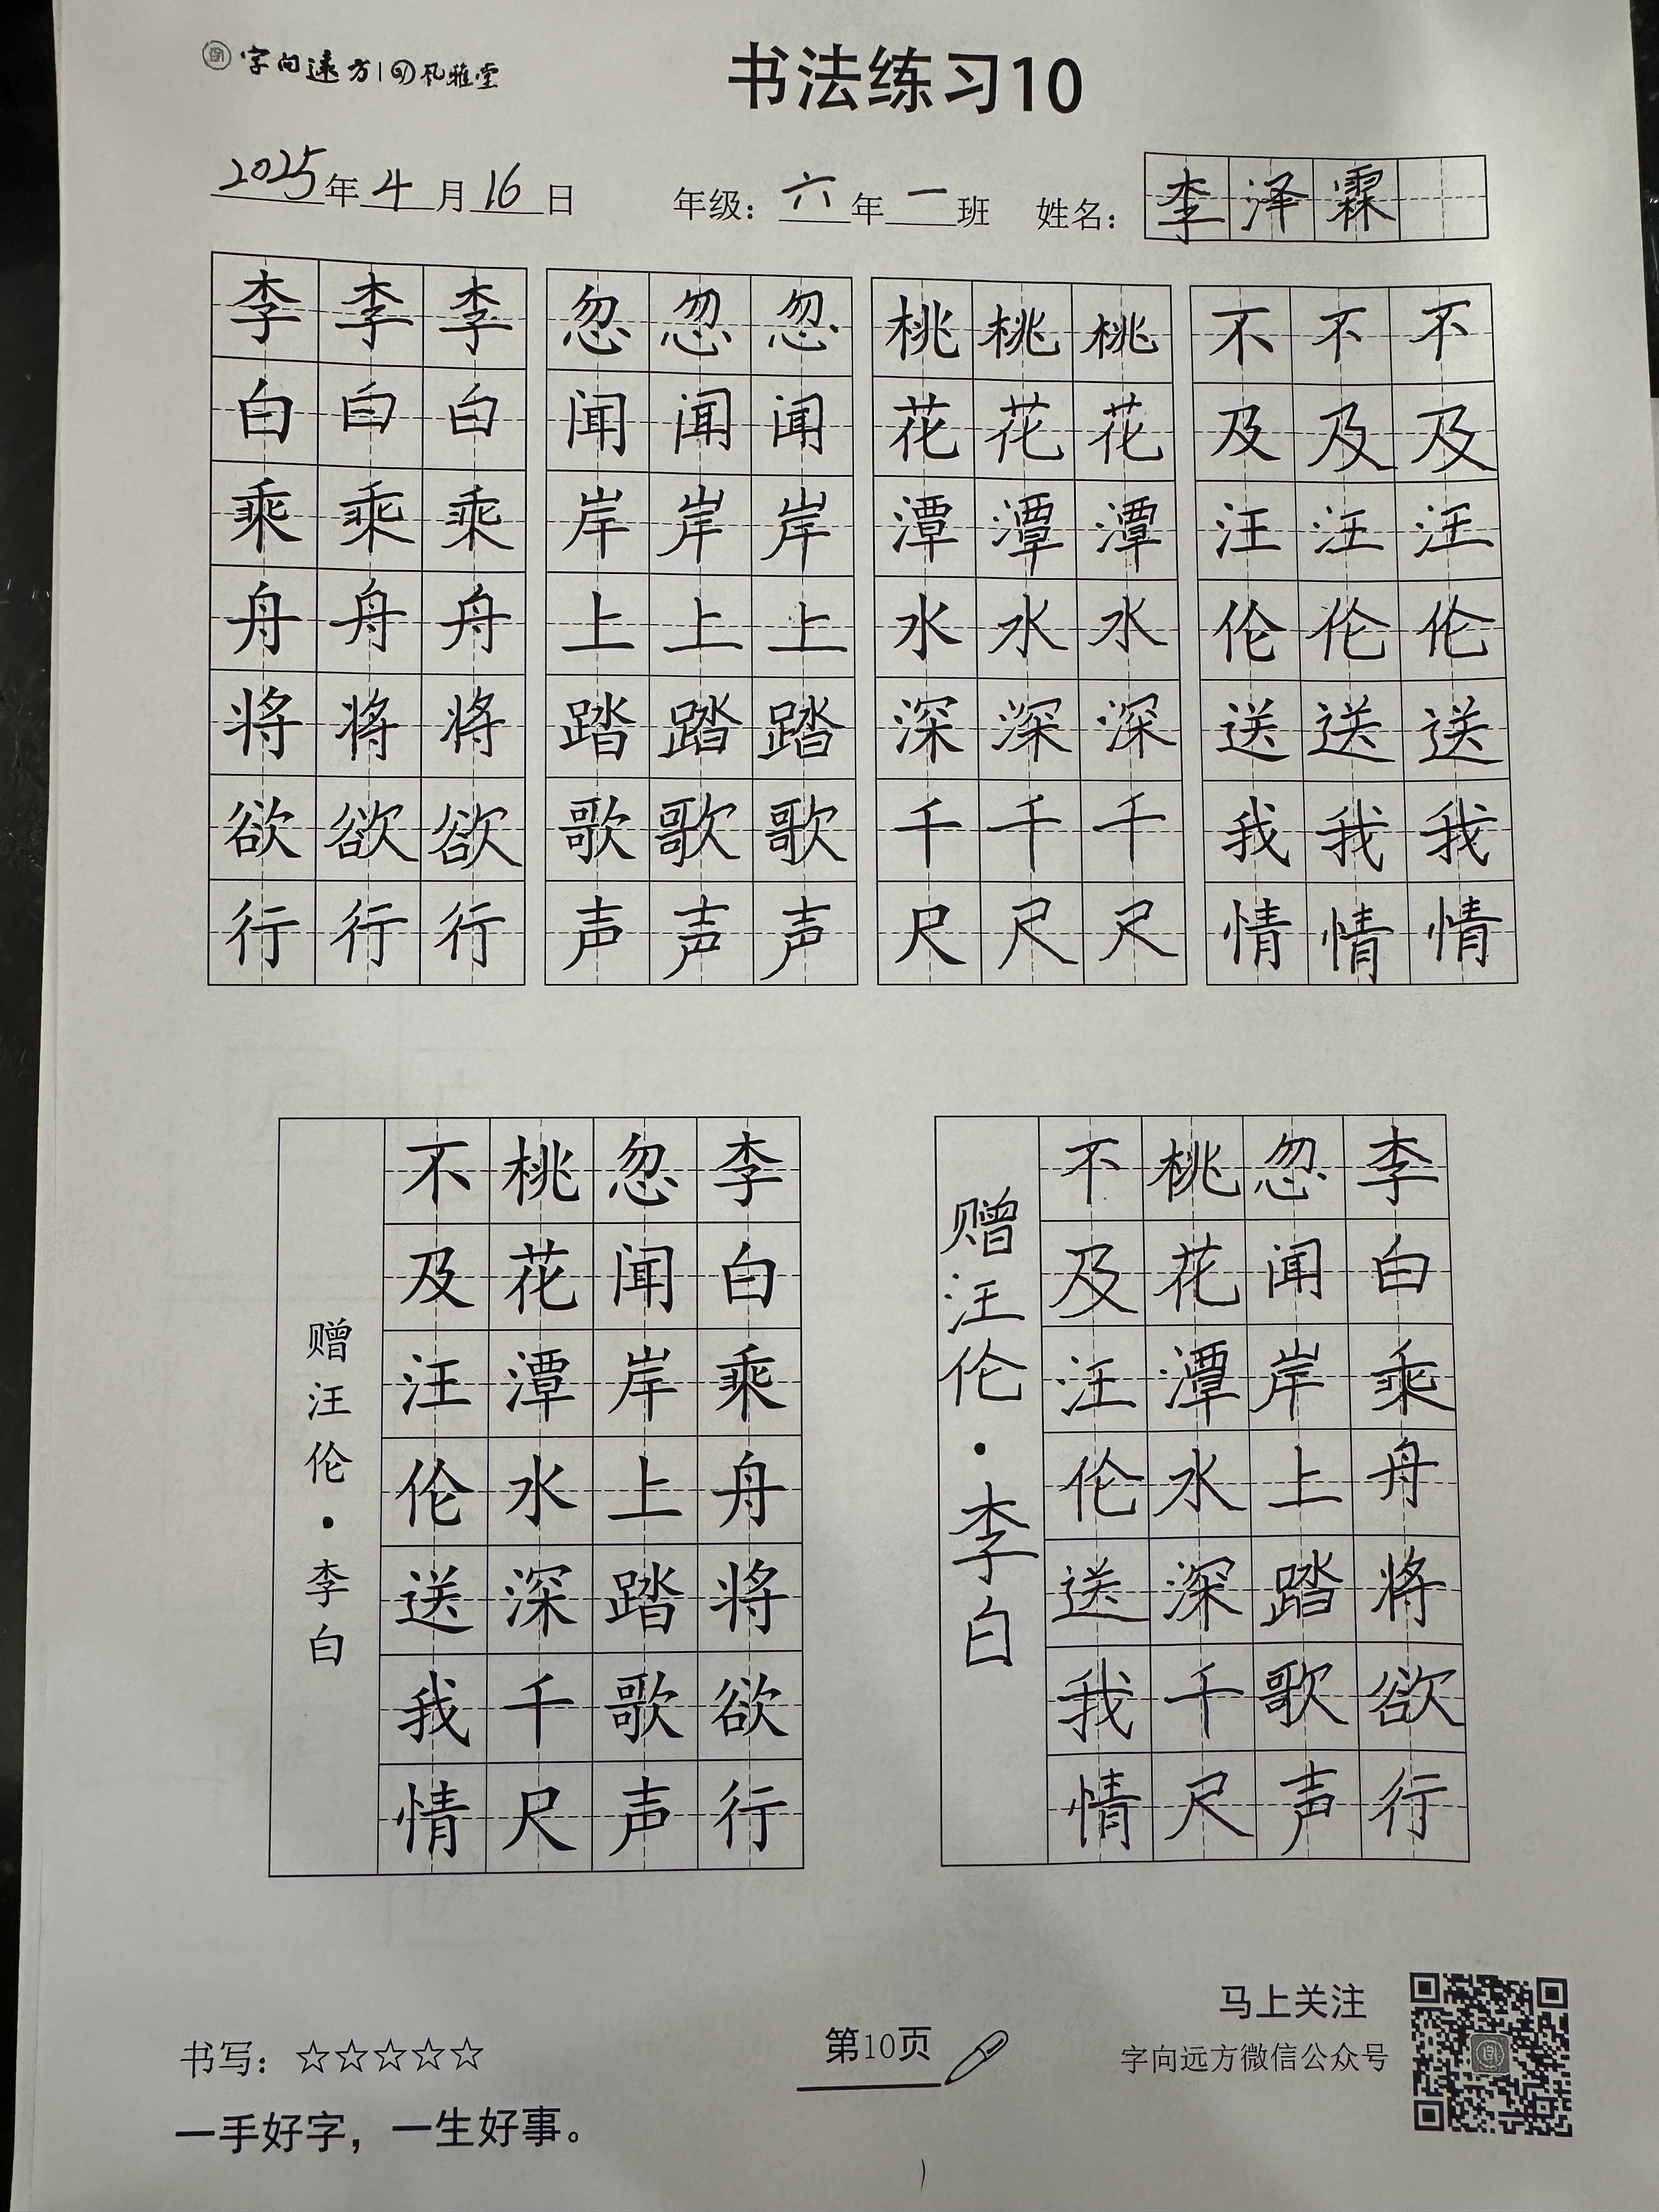 字向远方|风雅堂
书法练习10
2025年4月16日 年级：六年一班 姓名：李泽霖
李李李 忽忽忽 桃桃桃 不不不
白白白 闻闻闻 花花花 及及及
乘乘乘 岸岸岸 潭潭潭 汪汪汪
舟舟舟 上上上 水水水 伦伦伦
将将将 踏踏踏 深深深 送送送
欲欲欲 歌歌歌 千千千 我我我
行行行 声声声 尺尺尺 情情情
李白乘舟将欲行
忽闻岸上踏歌声
桃花潭水深千尺
不及汪伦送我情
赠汪伦·李白
李白乘舟将欲行
忽闻岸上踏歌声
桃花潭水深千尺
不及汪伦送我情
赠汪伦·李白
书写：☆☆☆☆☆
一手好字，一生好事。
第10页
马上关注
字向远方微信公众号